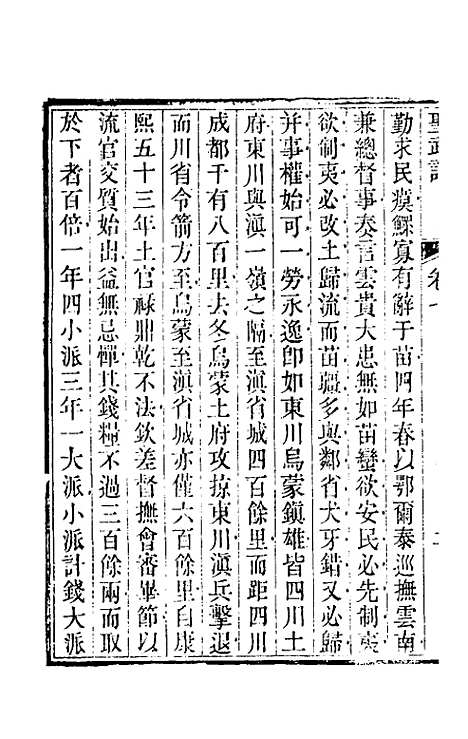 聖武記 卷七 二
勤求民瘼鰥寡有辭于苗四年春以鄂爾泰巡撫雲南
兼總督事奏言雲貴大患無如苗蠻欲安民必先制夷
欲制夷必改土歸流而苗疆多與鄰省犬牙錯又必歸
并事權始可一勞永逸卽如東川烏蒙鎮雄皆四川土
府東川與滇一嶺之隔至滇省城四百餘里而距四川
成都千有八百里去冬烏蒙土府攻掠東川滇兵擊退
而川省令箭方至烏蒙至滇省城亦僅六百餘里自康
熙五十三年土官祿鼎乾不法欽差督撫會審畢節以
流官交質始出益無忌憚其錢糧不過三百餘兩而取
於下者百倍一年四小派三年一大派小派計錢大派